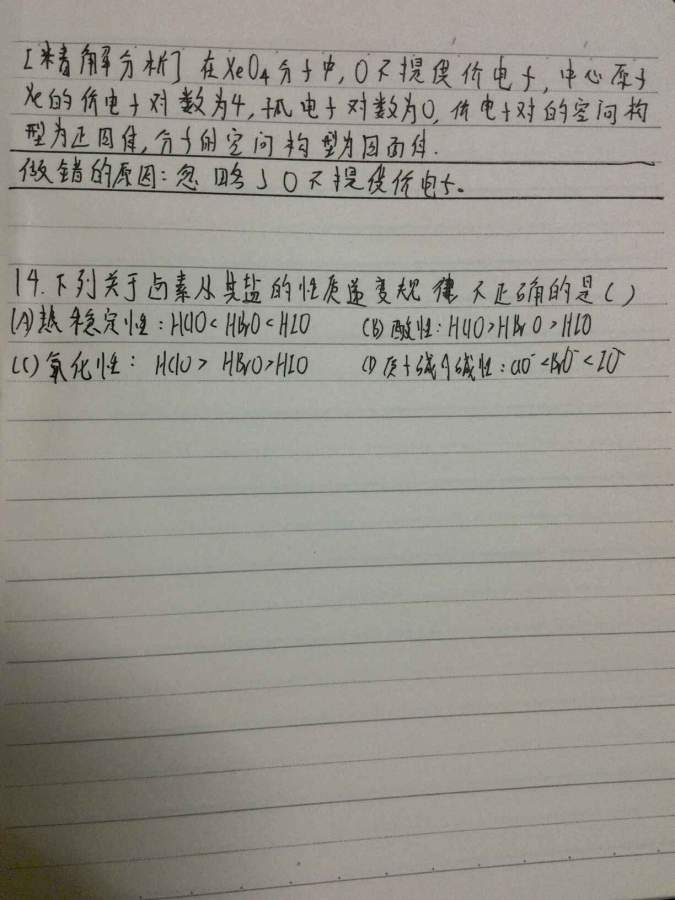 [精解分析] 在XeO4分子中,O不提供价电子,中心原子
Xe的价电子对数为4,孤电子对数为0,价电子对的空间构
型为正四面体,分子的空间构型为四面体.
做错的原因:忽略了O不提供价电子。
14.下列关于卤素从其盐的性质递变规律不正确的是( )
(A)热稳定性:HClO<HBrO<HIO (B)酸性:HClO>HBrO>HIO
(C)氧化性: HClO> HBrO>HIO (D)质子碱的碱性:ClO⁻<BrO⁻<IO⁻